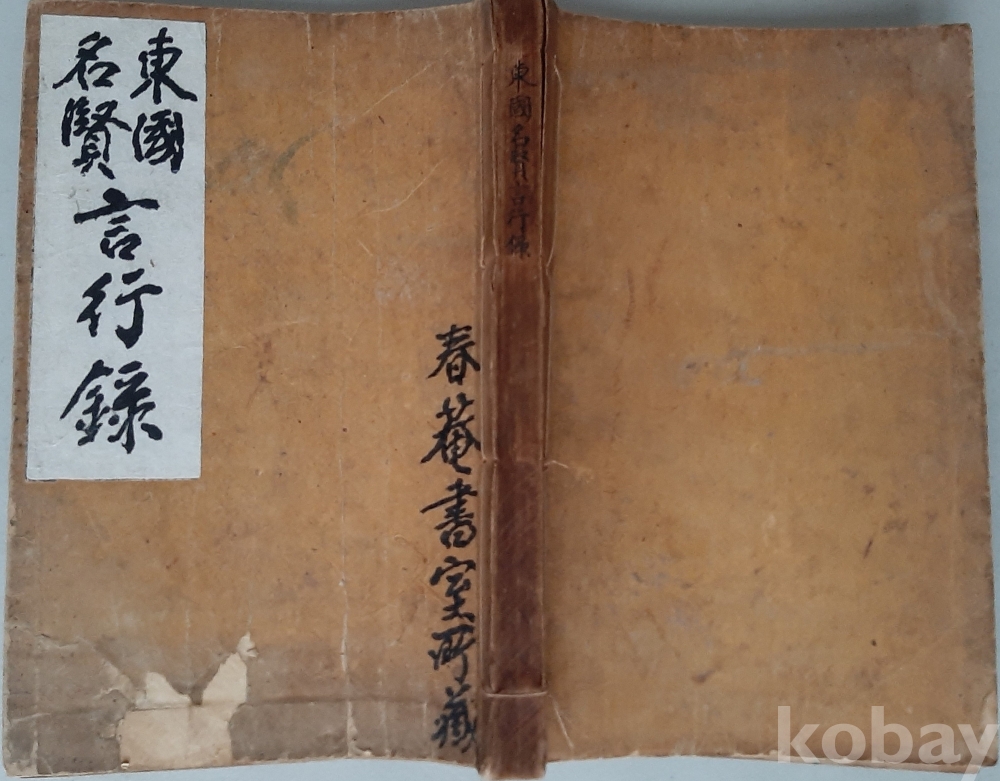 東國
名賢
言行錄
春菴書室所藏
東國名賢言行錄
kobay